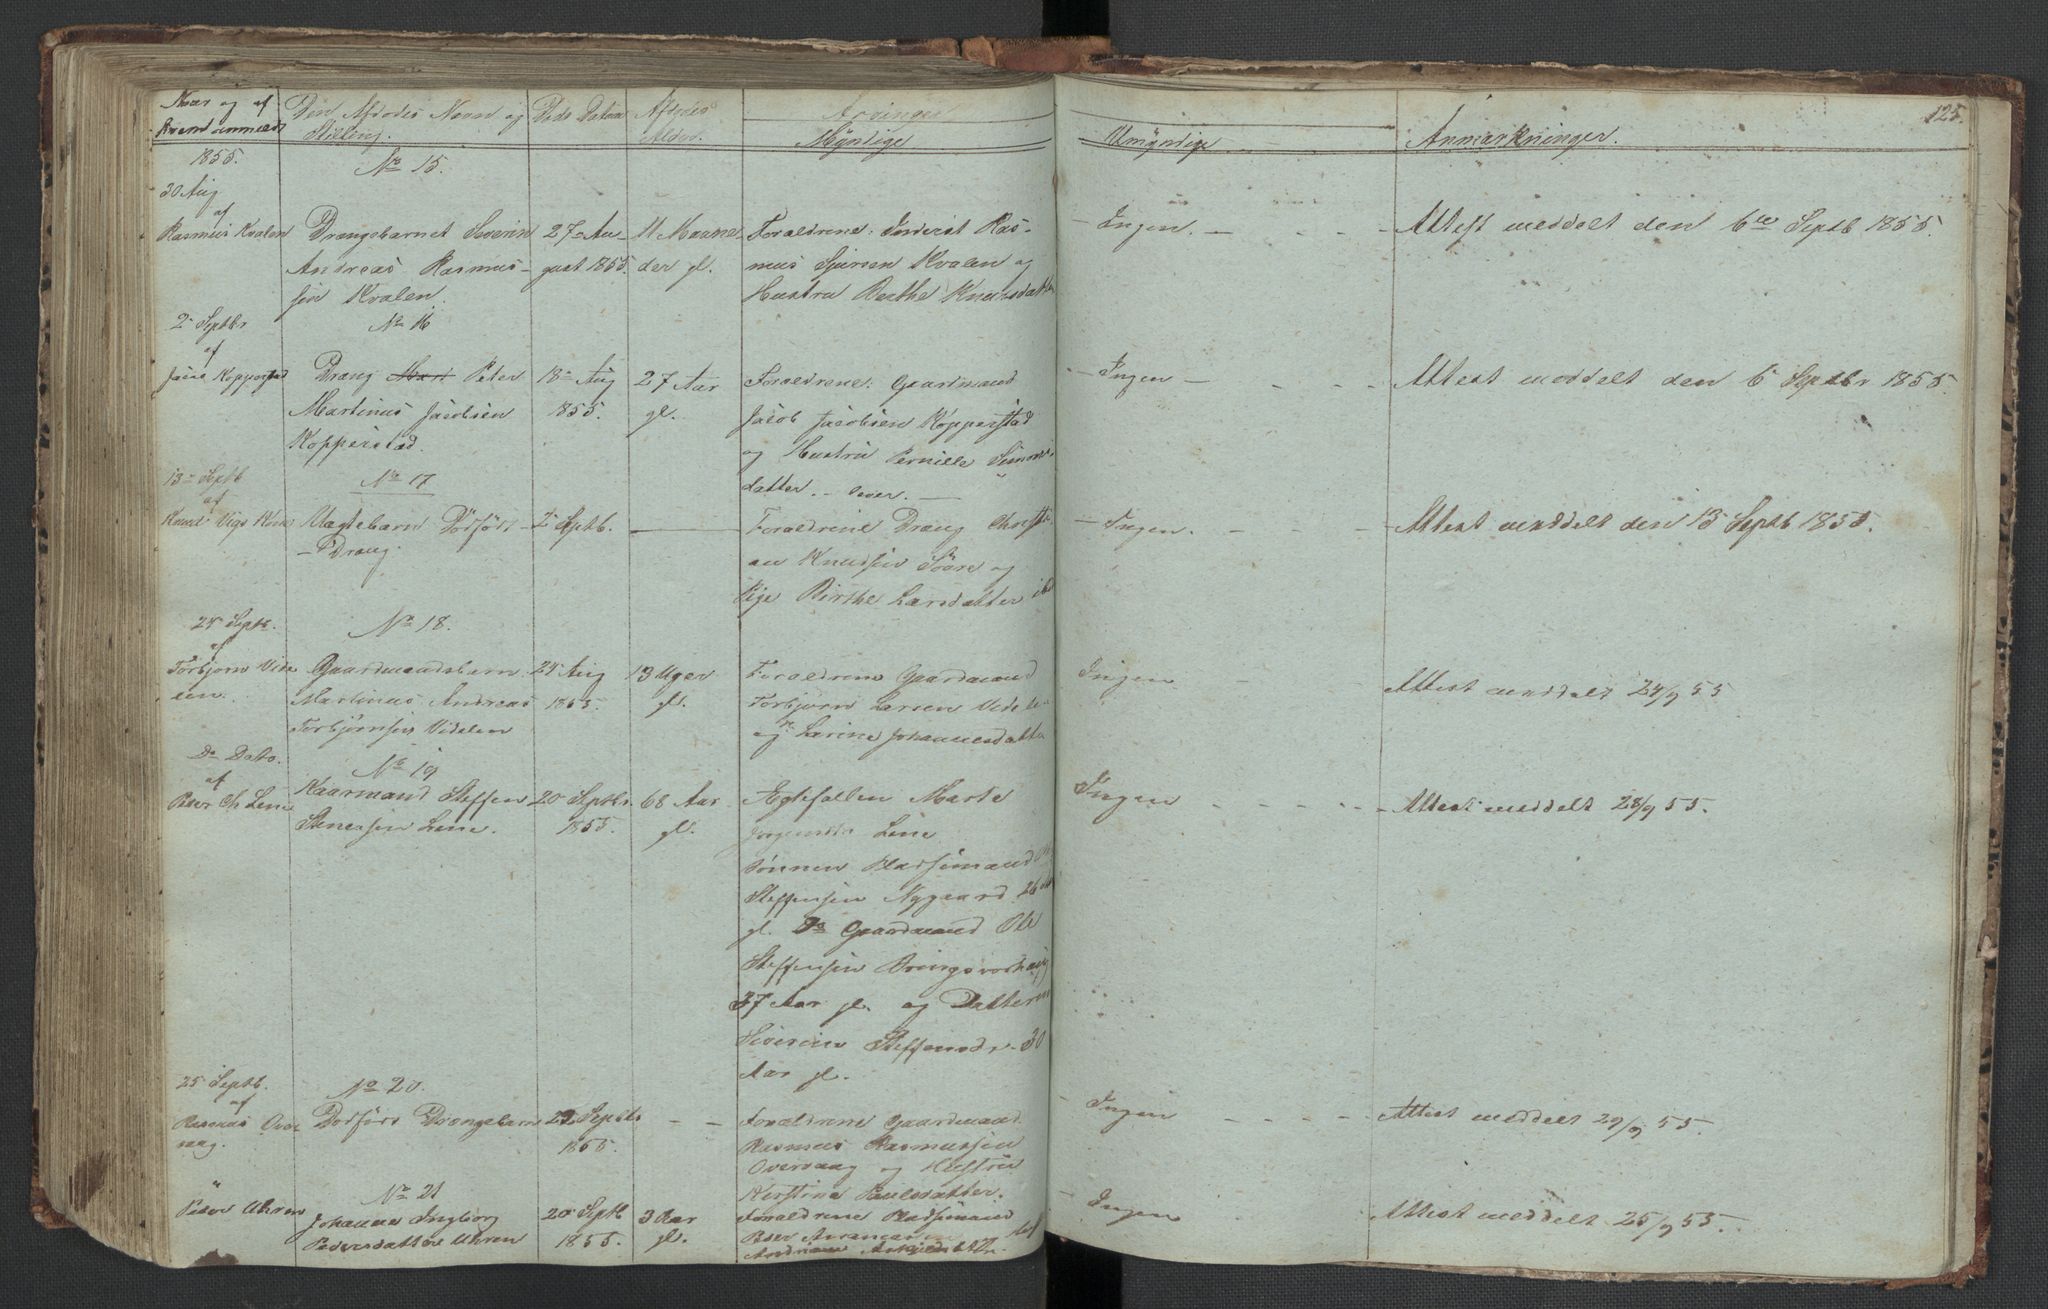 125.
Naar og af
hvem anmeldt
Den Afdødes Navn og
Stilling.
Døds Datum
Afdødes
Alder.
Arvinger
Myndige
Umyndige
Anmærkninger.
1855.
30 Aug
af
Rasmus Kvalen
No 15.
Drængebarnet Severin
Andreas Rasmus-
sen Kvalen.
27 Au-
gust 1855.
11 Maane-
der gl.
Forældrene: Inderst Ras-
mus Sjursen Kvalen og
Hustru Berthe Knudsdatter
Ingen.
Attest meddelt den 6te Septb 1855.
2 Septbr
af
Kopperstad
No 16
Dræng Peter
Martinus Jacobsen
Kopperstad.
18 Aug
1855.
27 Aar
gl.
Forældrene: Gaardmand
Jacob Jacobsen Kopperstad
og Hustru Pernille Simons-
datter.
Ingen
Attest meddelt den 6 Septbr 1855.
13 Septb
af
Knud
No 17
Uægtebarn Dødfødt
Dræng.
2 Septb.
Forældrene Dræng Christi-
an Knudsen og
Pige Birthe Larsdatter ibd
Ingen.
Attest meddelt den 13 Septb 1855.
24 Septb.
af
Torbjørn Vide
len.
No 18.
Gaardmandsbarn
Martinus Andreas
Torbjørnsen Videlen
24 Aug
1855.
13 Uger
gl.
Forældrene Gaardmand
Torbjørn Larsen Videle-
og Larine Johannesdatter
Ingen
Attest meddelt 24/9 55
Do Dato.
af
Peer Lene
No 19
Kaarmand Steffen
Stenersen Lene.
20 Septbr
1855.
68 Aar
gl.
Ægtefællen Marte
Lene
Sønnen Pladsemand
Steffensen Nygaard 26
gl. Do Gaardmand Ole
Steffensen
37 Aar gl. og Datteren
Severine Steffensdr. 30
Aar gl.
Ingen
Attest meddelt 28/9 55.
25 Septb.
af
Rasmus Over
vaag.
No 20.
Dødfødt Drængebarn
22 Septbr
1855.
Forældrene Gaardmand
Rasmus Rasmussen
Overvaag og Hustru
Kirstina Paulsdatter.
Ingen
Attest meddelt 29/9 55.
Peder Uhren
No 21
Johanne Ingborg
Pedersdatter Uhren
20 Septb
1855.
3 Aar
gl.
Forældrene Pladsemand
Ingen
Attest meddelt 25/9 55.